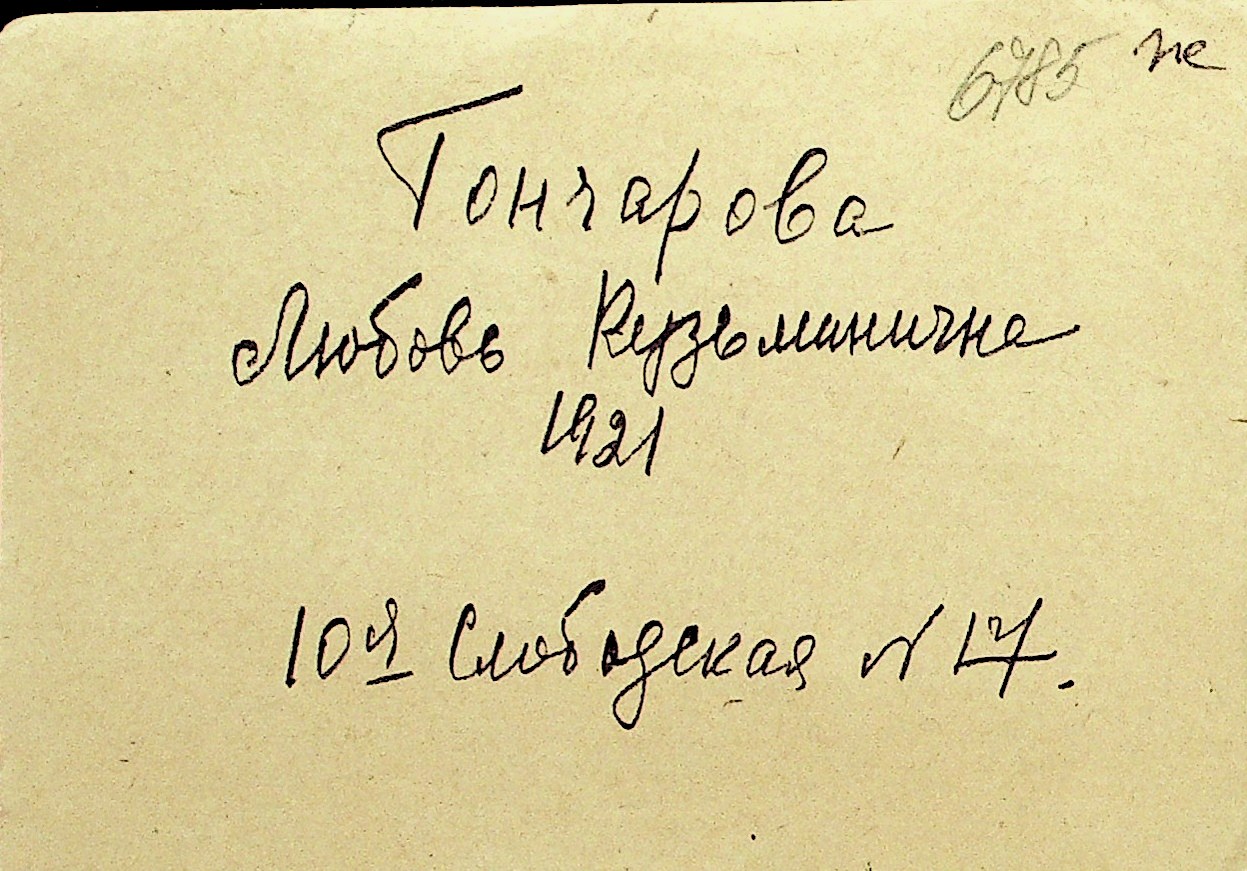 6785 не
Гончарова
Любовь Кузьминична
1921
10я Слободская N 17.